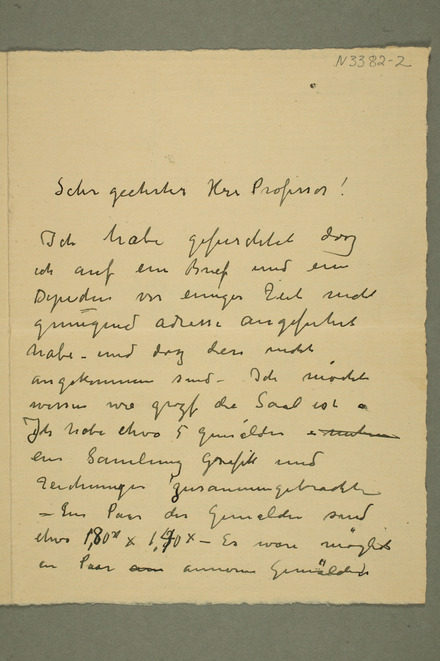 N3382-2
Sehr geehrter Herr Professor!
Ich habe gefurchtet dazz
ich auf ein Brief und ein
Depeche vor einiger Zeit nicht
genugend adresse angefuhrt
habe - und dazz dese nicht
angekommen sind - Ich mochte
wissen wie grozf die Saal ist
Ich habe etwa 5 gemälder
eine Samlung Grafik und
Zeichnungen zusammengebracht
- Ein Paar der Gemalder sind
etwa 1,80 x 1, - Es ware möglich
en Paar annerere Gemälder